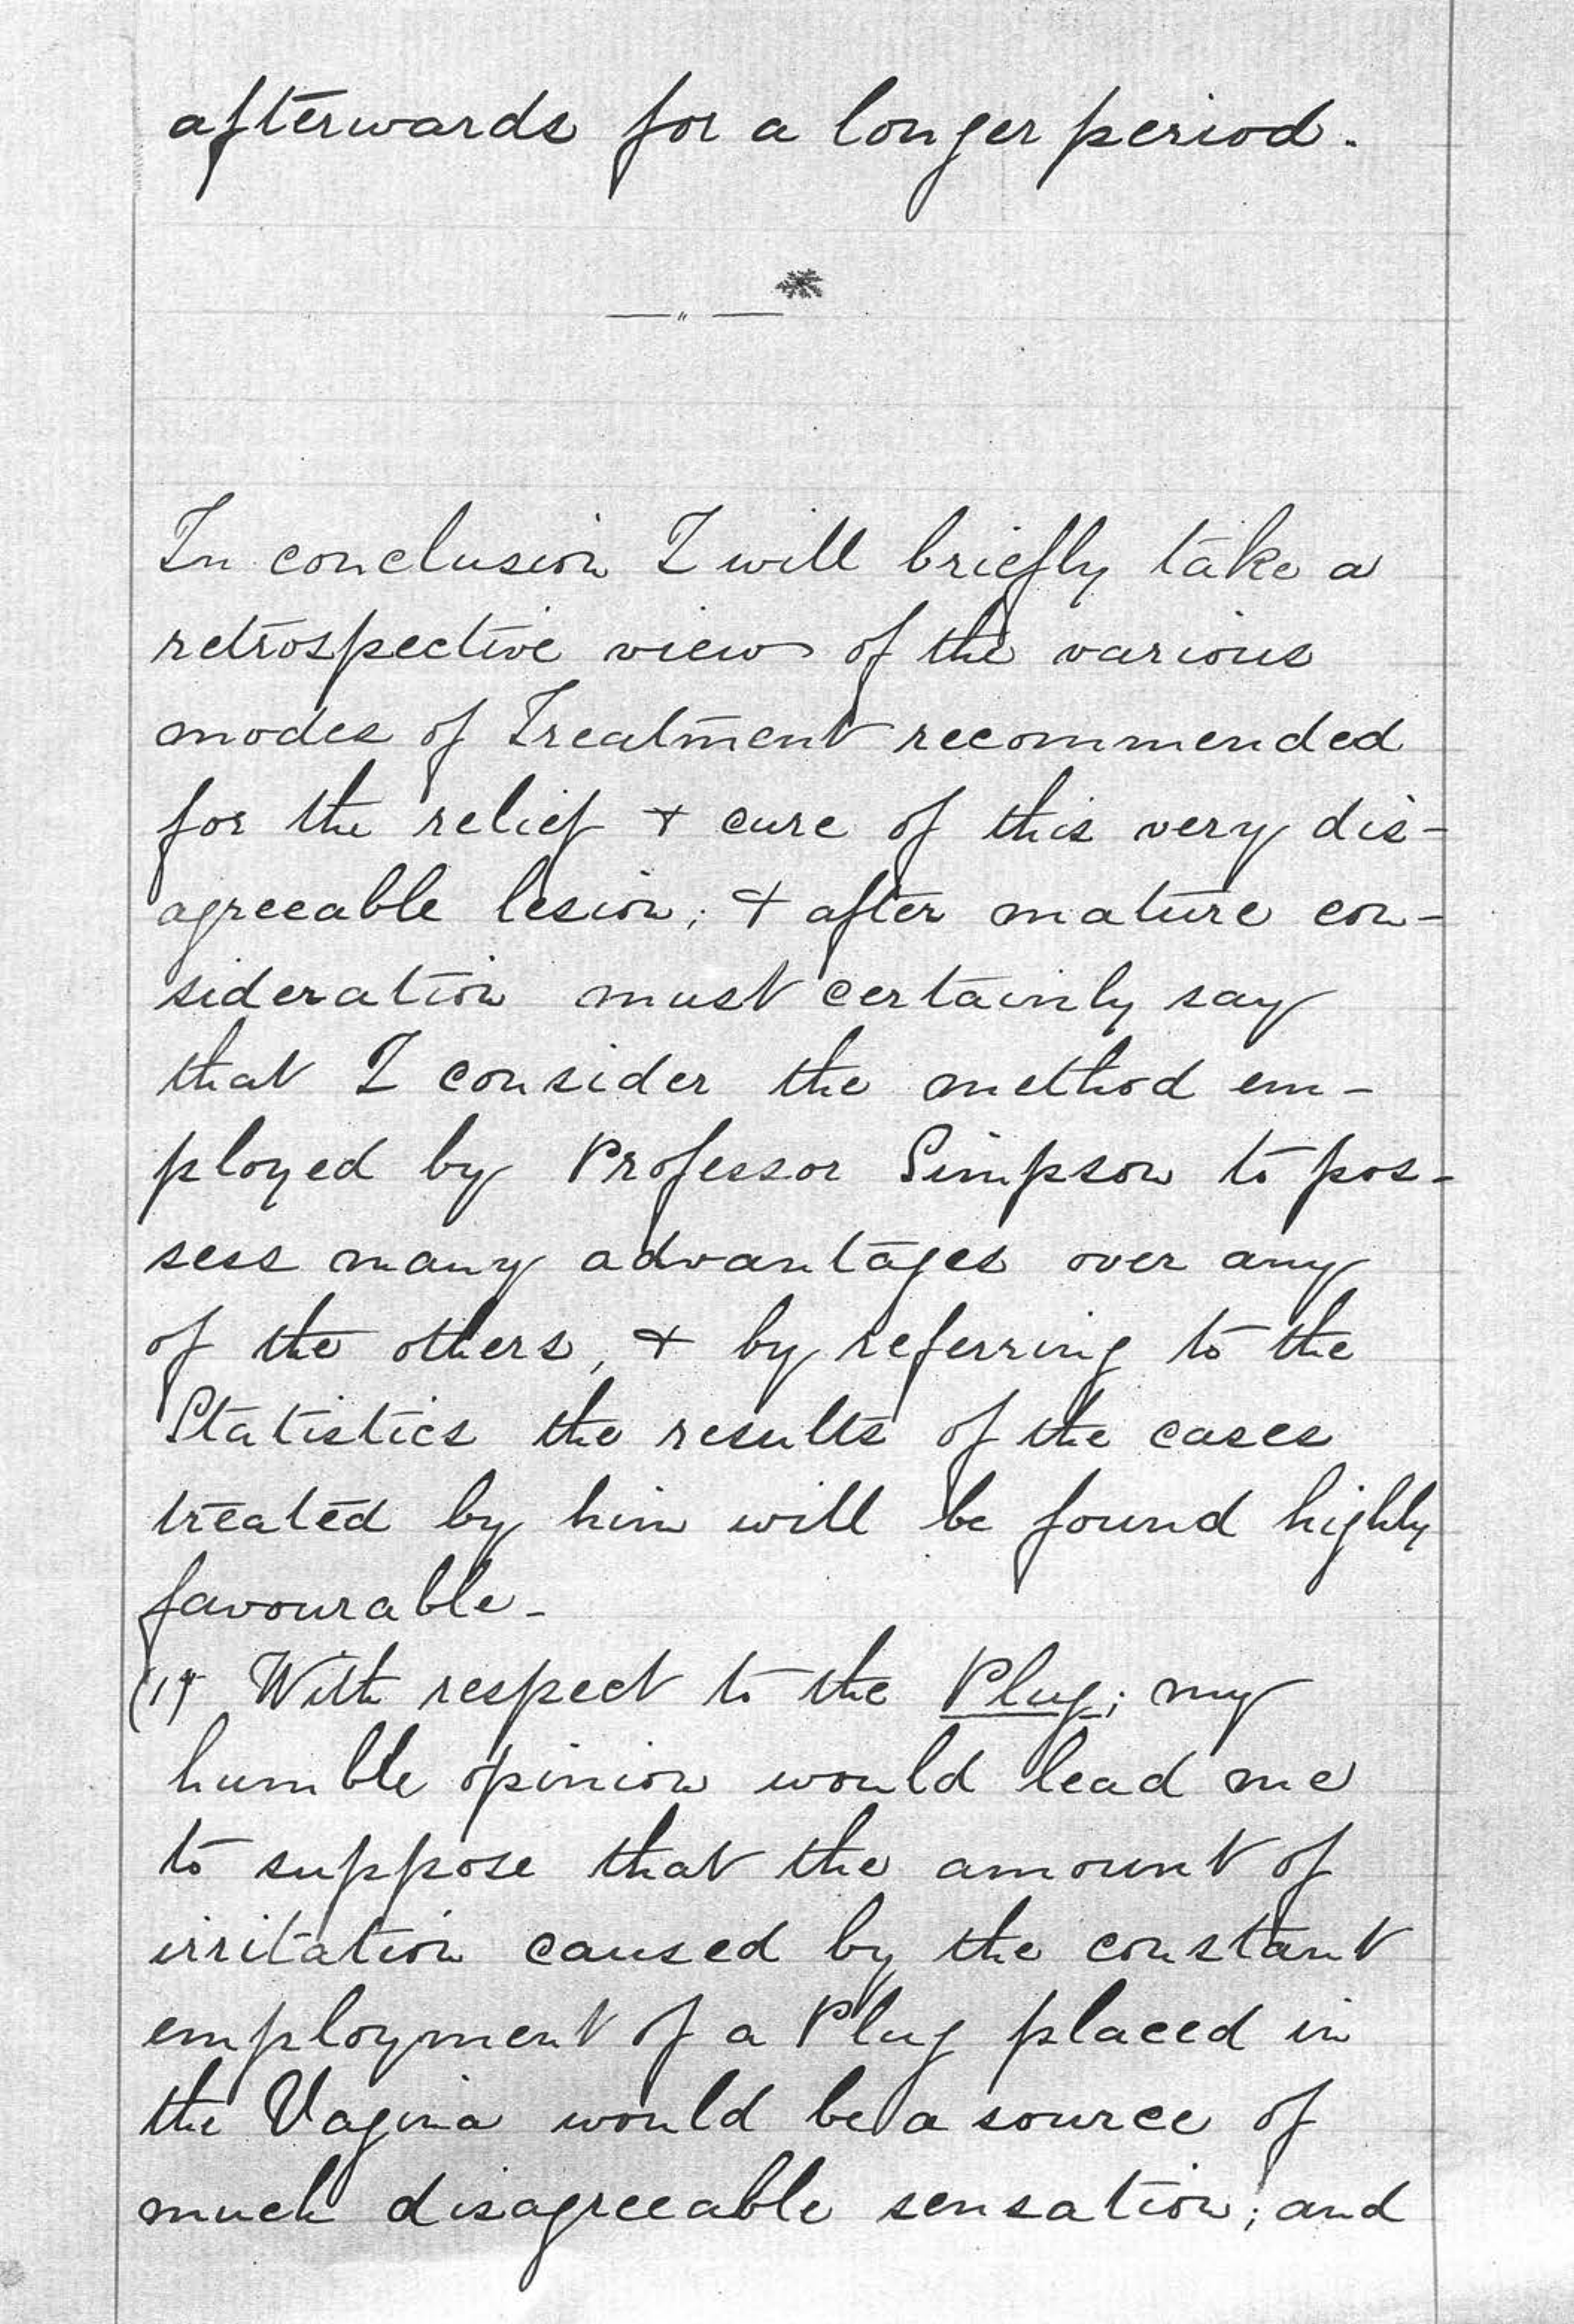 afterwards for a longer period.
—„—
In conclusion I will briefly take a
retrospective view of the various
modes of Treatment recommended
for the relief + cure of this very dis-
agreeable lesion; + after mature con-
sideration must certainly say
that I consider the method em-
ployed by Professor Simpson to pos-
sess many advantages over any
of the others, + by referring to the
Statistics the results of the cases
treated by him will be found highly
favourable-
(1) With respect to the Plug; my
humble opinion would lead me
to suppose that the amount of
irritation caused by the constant
employment of a Plug placed in
the Vagina would be a source of
much disagreeable sensation; and